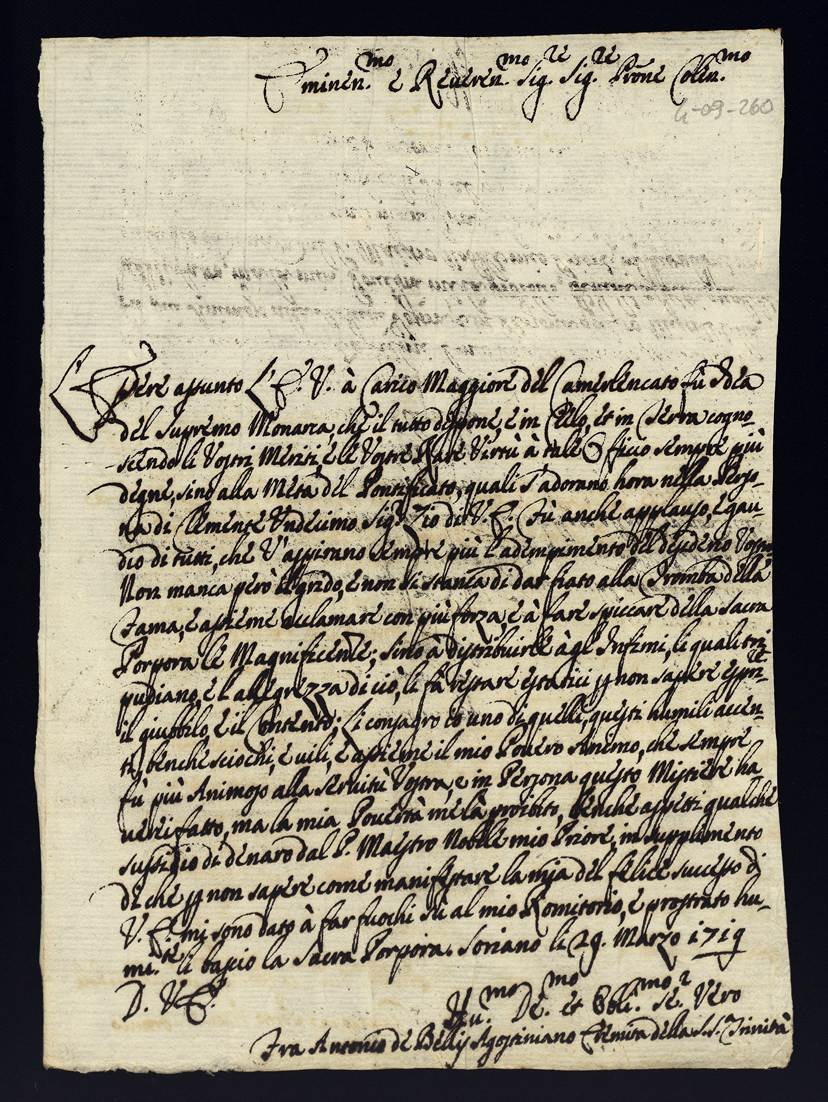 Eminen.mo e Reveren.mo Sig.re Sig.re Prone Colen.mo
G-09-260
L'Essere assunto L'E. V. à Carico Maggiore del Camerlencato fù Idea
del Supremo Monarca, che il tutto dispone, e in Cielo, et in Terra cogno-
scendo li Vostri Meriti, e le Vostre Rare Virtù à tale Officio sempre più
degne, sino alla Meta del Pontificato, quali s'adorano hora nella Perso-
na di Clemente Undecimo Sig.r Zio di V. E. Fù anche applauso, e gau-
dio di tutti, che V'aspirano sempre più l'adempimento del desiderio Vostro
Non manca però le grido, e non si stanca di dar fiato alla Tromba della
Fama, e assieme acclamare con più forza e à fare spiccare della Sacra
Porpora le Magnificenze; sino à distribuirle à gl'Infimi, li quali tri-
pudiano, e l'allegrezza di ciò, li fà restare estatici p non sapere espri.re
il giubbilo, e il Contento; Li consacro io uno di quelli, questi humili accen-
ti, benche sciochi, e vili, e assieme il mio Povero Animo, che sempre
fù più Animoso alla servitù Vostra, e in Persona questo Mistiere ha
verei fatto, ma la mia Povertà me là proibito, benche aspetti qualche
sussidio di denaro dal P. Maestro Nobile mio Priore, in supplimento
di che p non sapere come manifestare la mia del felice successo di
V. E. mi sono dato à far fuochi sù al mio Romitorio, e prostrato hu-
mi.te li bagio la Sacra Porpora. Soriano li 29. Marzo 1719
D. V. E.
Hu.mo De.mo et Obli.mo Se.r Vero
Fra Antonio de Bellis Agostiniano Eremita della S.S. Trinità